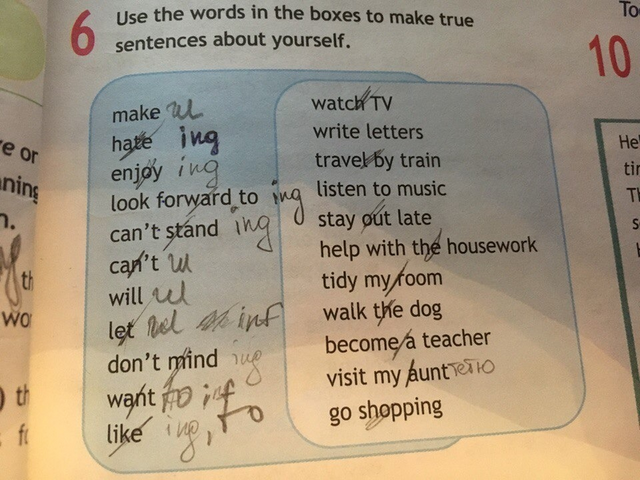 6 Use the words in the boxes to make true
sentences about yourself.
make
hate ing
enjoy ing
look forward to ing
can't stand ing
can't
will
let inf
don't mind ing
want to inf
like ing, to
watch TV
write letters
travel by train
listen to music
stay out late
help with the housework
tidy my room
walk the dog
become a teacher
visit my aunt тетю
go shopping
To
10